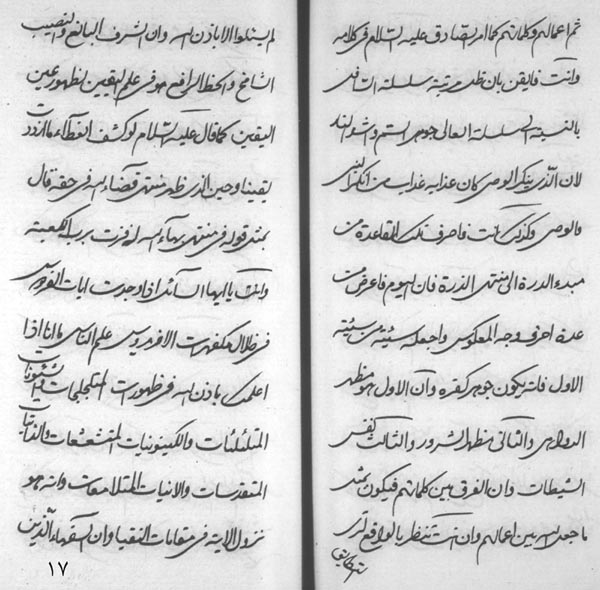 ثم اعمالهم وكلماتهم كما امر الصادق عليه السلام في كلامه
وانت فايقن بان ظهر مرتبة سلسلة الثاني
بالنسبة الى سلسلة العالي جوهر السم
لان الذي ينكر الوصي كان عذابه عذاب من انكر النبي
فالوصي وكذلك انت فاصرف تلك القاعدة من
مبدء الذرة الى منتهى الذرة فان اليوم فاعرض من
عدة احرف وجه المعكوس واجعله سيئة من سيئة
الاول فلت يكون جوهر كفره وان الاول هو مظهر
الدواهي والثاني مظهر الشرور والثالث كنفس
الشيطان وان الفرق بين كلماتهم فيكون بمثل
ما جعل الله بين اعمالهم وان انت تنظر بالواقع لترى
لم ينالوا الا باذن الله وان الشرف الباذخ والنصيب
الشامخ والحظ الرافع هو في علم اليقين لظهور عين
اليقين كما قال عليه السلام لو كشف الغطاء ما ازددت
يقينا وحين الذي ظهر منتهى قضاء الله في حقه قال
بمثل قوله في منتهى بهاء الله فزت برب الكعبة
وانك يا ايها السائل اذا وجدت ايات الفردوس
في ظلال مكفهرات الافريدوس علم الناس ما انا اذا
اعلمك باذن الله في ظهورات المتجلجات
المتلئلئات والكينونيات المتشعشعات والذاتيات
المتقدسات والانيات المتلامعات وانه هو
نزول الاية في مقامات النقباء وان السفهاء الذين
١٧